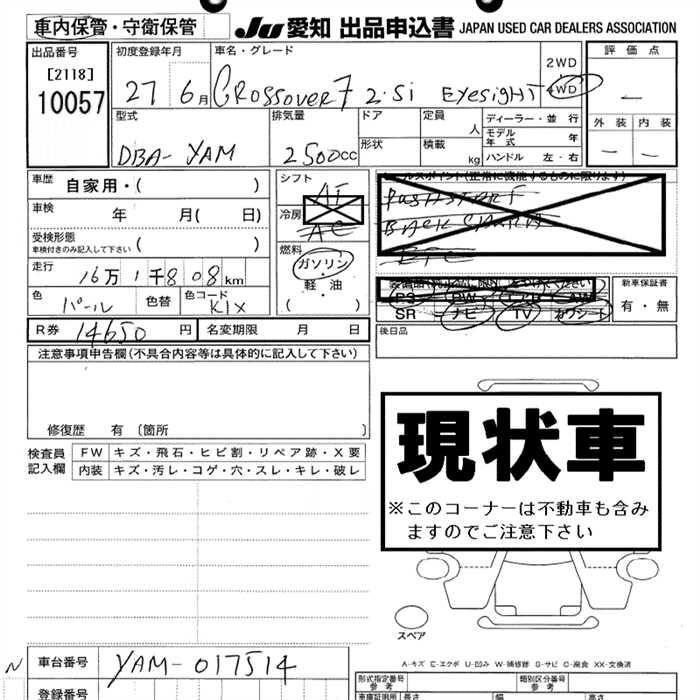 車内保管・守衛保管
JU 愛知 出品申込書 JAPAN USED CAR DEALERS ASSOCIATION
出品番号
[2118]
10057
初度登録年月
27 6月
車名・グレード
CROSSOVER7 2.5i EYESIGHT
2WD
4WD
評価点
—
外装 内装
— —
型式
DBA-YAM
排気量
2500cc
ドア
形状
定員
人
積載
kg
ディーラー・並行
モデル年式 年
ハンドル 左・右
車歴 自家用・( )
車検 年 月( 日)
受検形態
車検付きのみ記入して下さい ( )
走行 16万1千808km
色 パール
色替
色コード K1X
R券 14650円
名変期限 月 日
シフト AT
冷房 AC
燃料
ガソリン・軽油
( )
セールスポイント(正常に機能するものに限ります)
PUSH START
BACK CAMERA
ETC
PS PW エアB AW
SR ナビ TV カワシート
新車保証書
有・無
後日品
注意事項申告欄(不具合内容等は具体的に記入して下さい)
修復歴 有〔箇所 〕
検査員記入欄
FW キズ・飛石・ヒビ割・リペア跡・X要
内装 キズ・汚レ・コゲ・穴・スレ・キレ・破レ
現状車
※このコーナーは不動車も含みますのでご注意下さい
スペア
A-キズ E-エクボ U-凹み W-補修跡 S-サビ C-腐食 XX-交換済
N
車台番号 YAM-017514
登録番号
形式指定番号
参考
類別区分番号
参考
車庫証明用 長さ 幅 高さ